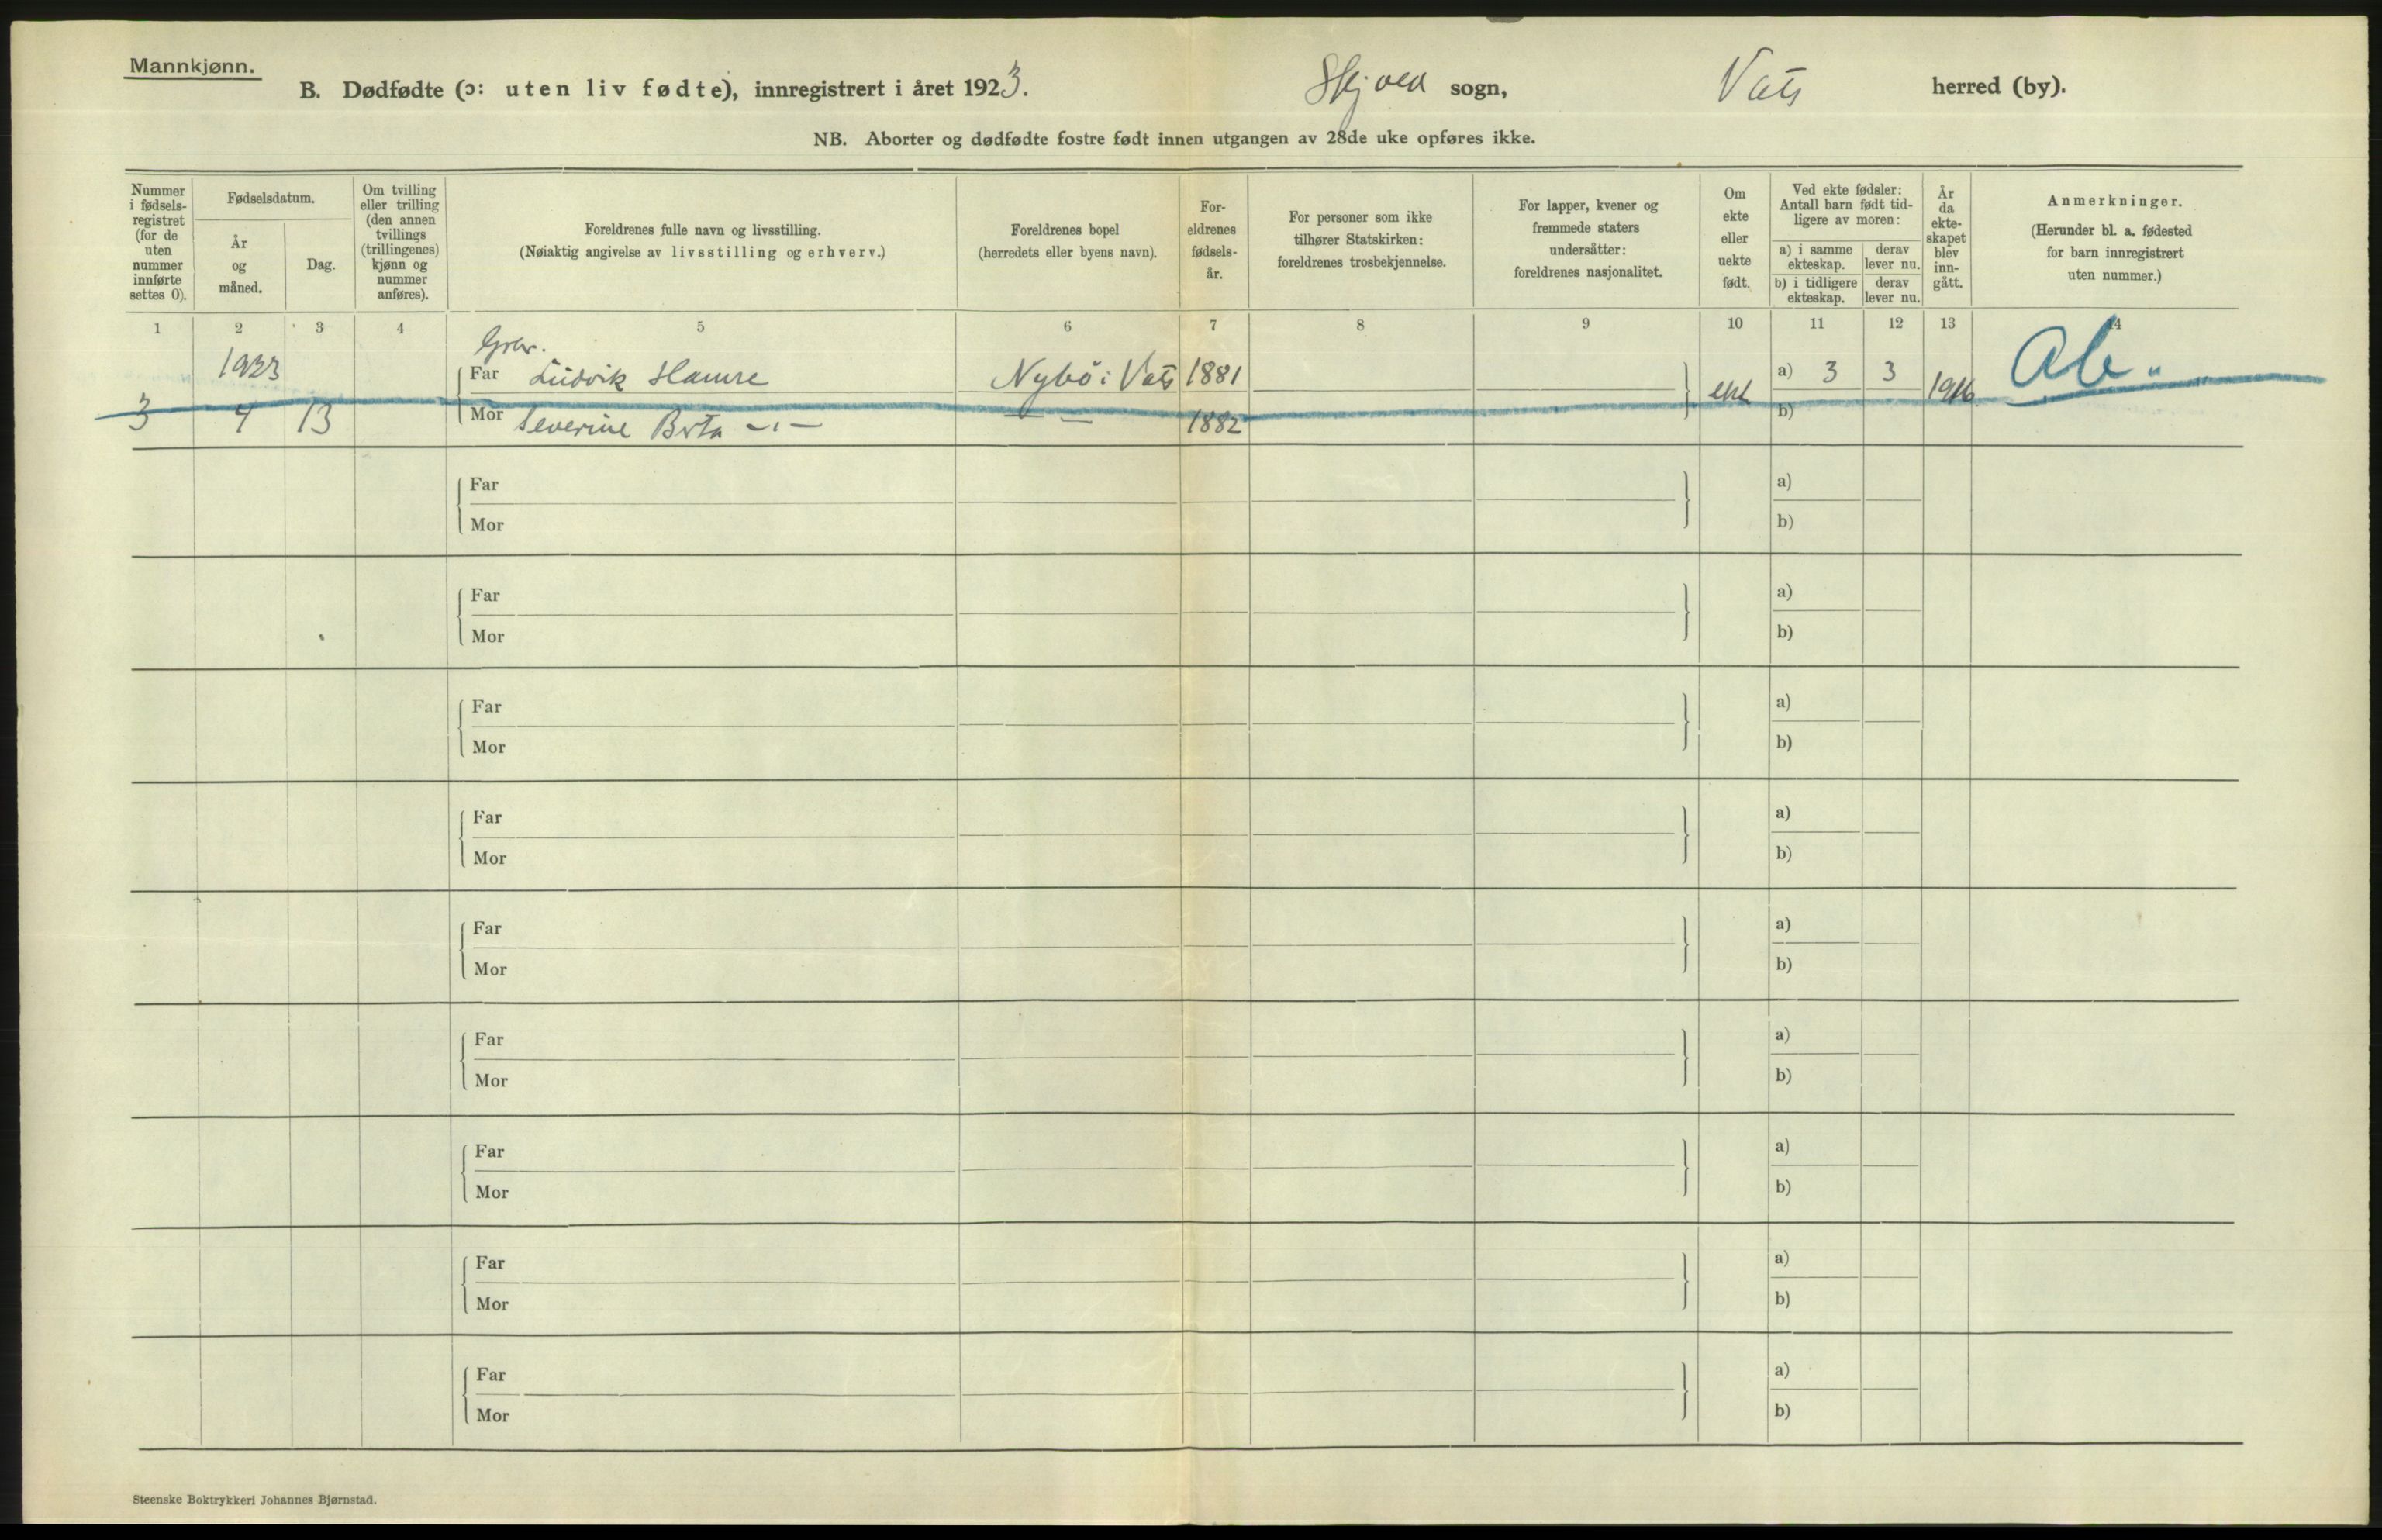 Mannkjønn.
B. Dødfødte (ɔ: uten liv fødte), innregistrert i året 1923. Skjold sogn, Vats herred (by).
NB. Aborter og dødfødte fostre født innen utgangen av 28de uke opføres ikke.
Nummer i fødsels-registret (for de uten nummer innførte settes 0).
Fødselsdatum.
År og måned.
Dag.
Om tvilling eller trilling (den annen tvillings (trillingenes) kjønn og nummer anføres).
Foreldrenes fulle navn og livsstilling.
(Nøiaktig angivelse av livsstilling og erhverv.)
Foreldrenes bopel
(herredets eller byens navn).
For-eldrenes fødsels-år.
For personer som ikke tilhører Statskirken: foreldrenes trosbekjennelse.
For lapper, kvener og fremmede staters undersåtter: foreldrenes nasjonalitet.
Om ekte eller uekte født.
Ved ekte fødsler: Antall barn født tid-ligere av moren:
a) i samme ekteskap.
derav lever nu.
b) i tidligere ekteskap.
derav lever nu.
År da ekte-skapet blev inn-gått.
Anmerkninger.
(Herunder bl. a. fødested for barn innregistrert uten nummer.)
1 2 3 4 5 6 7 8 9 10 11 12 13 14
1923 Far Ludvik Hamre Nybö i Vats 1881 a) 3 3 1916 Ab.
3 4 13 Mor Severine Brta -"- — — 1882 ekt b)
Far a)
Mor b)
Far a)
Mor b)
Far a)
Mor b)
Far a)
Mor b)
Far a)
Mor b)
Far a)
Mor b)
Far a)
Mor b)
Far a)
Mor b)
Far a)
Mor b)
Steenske Boktrykkeri Johannes Bjørnstad.